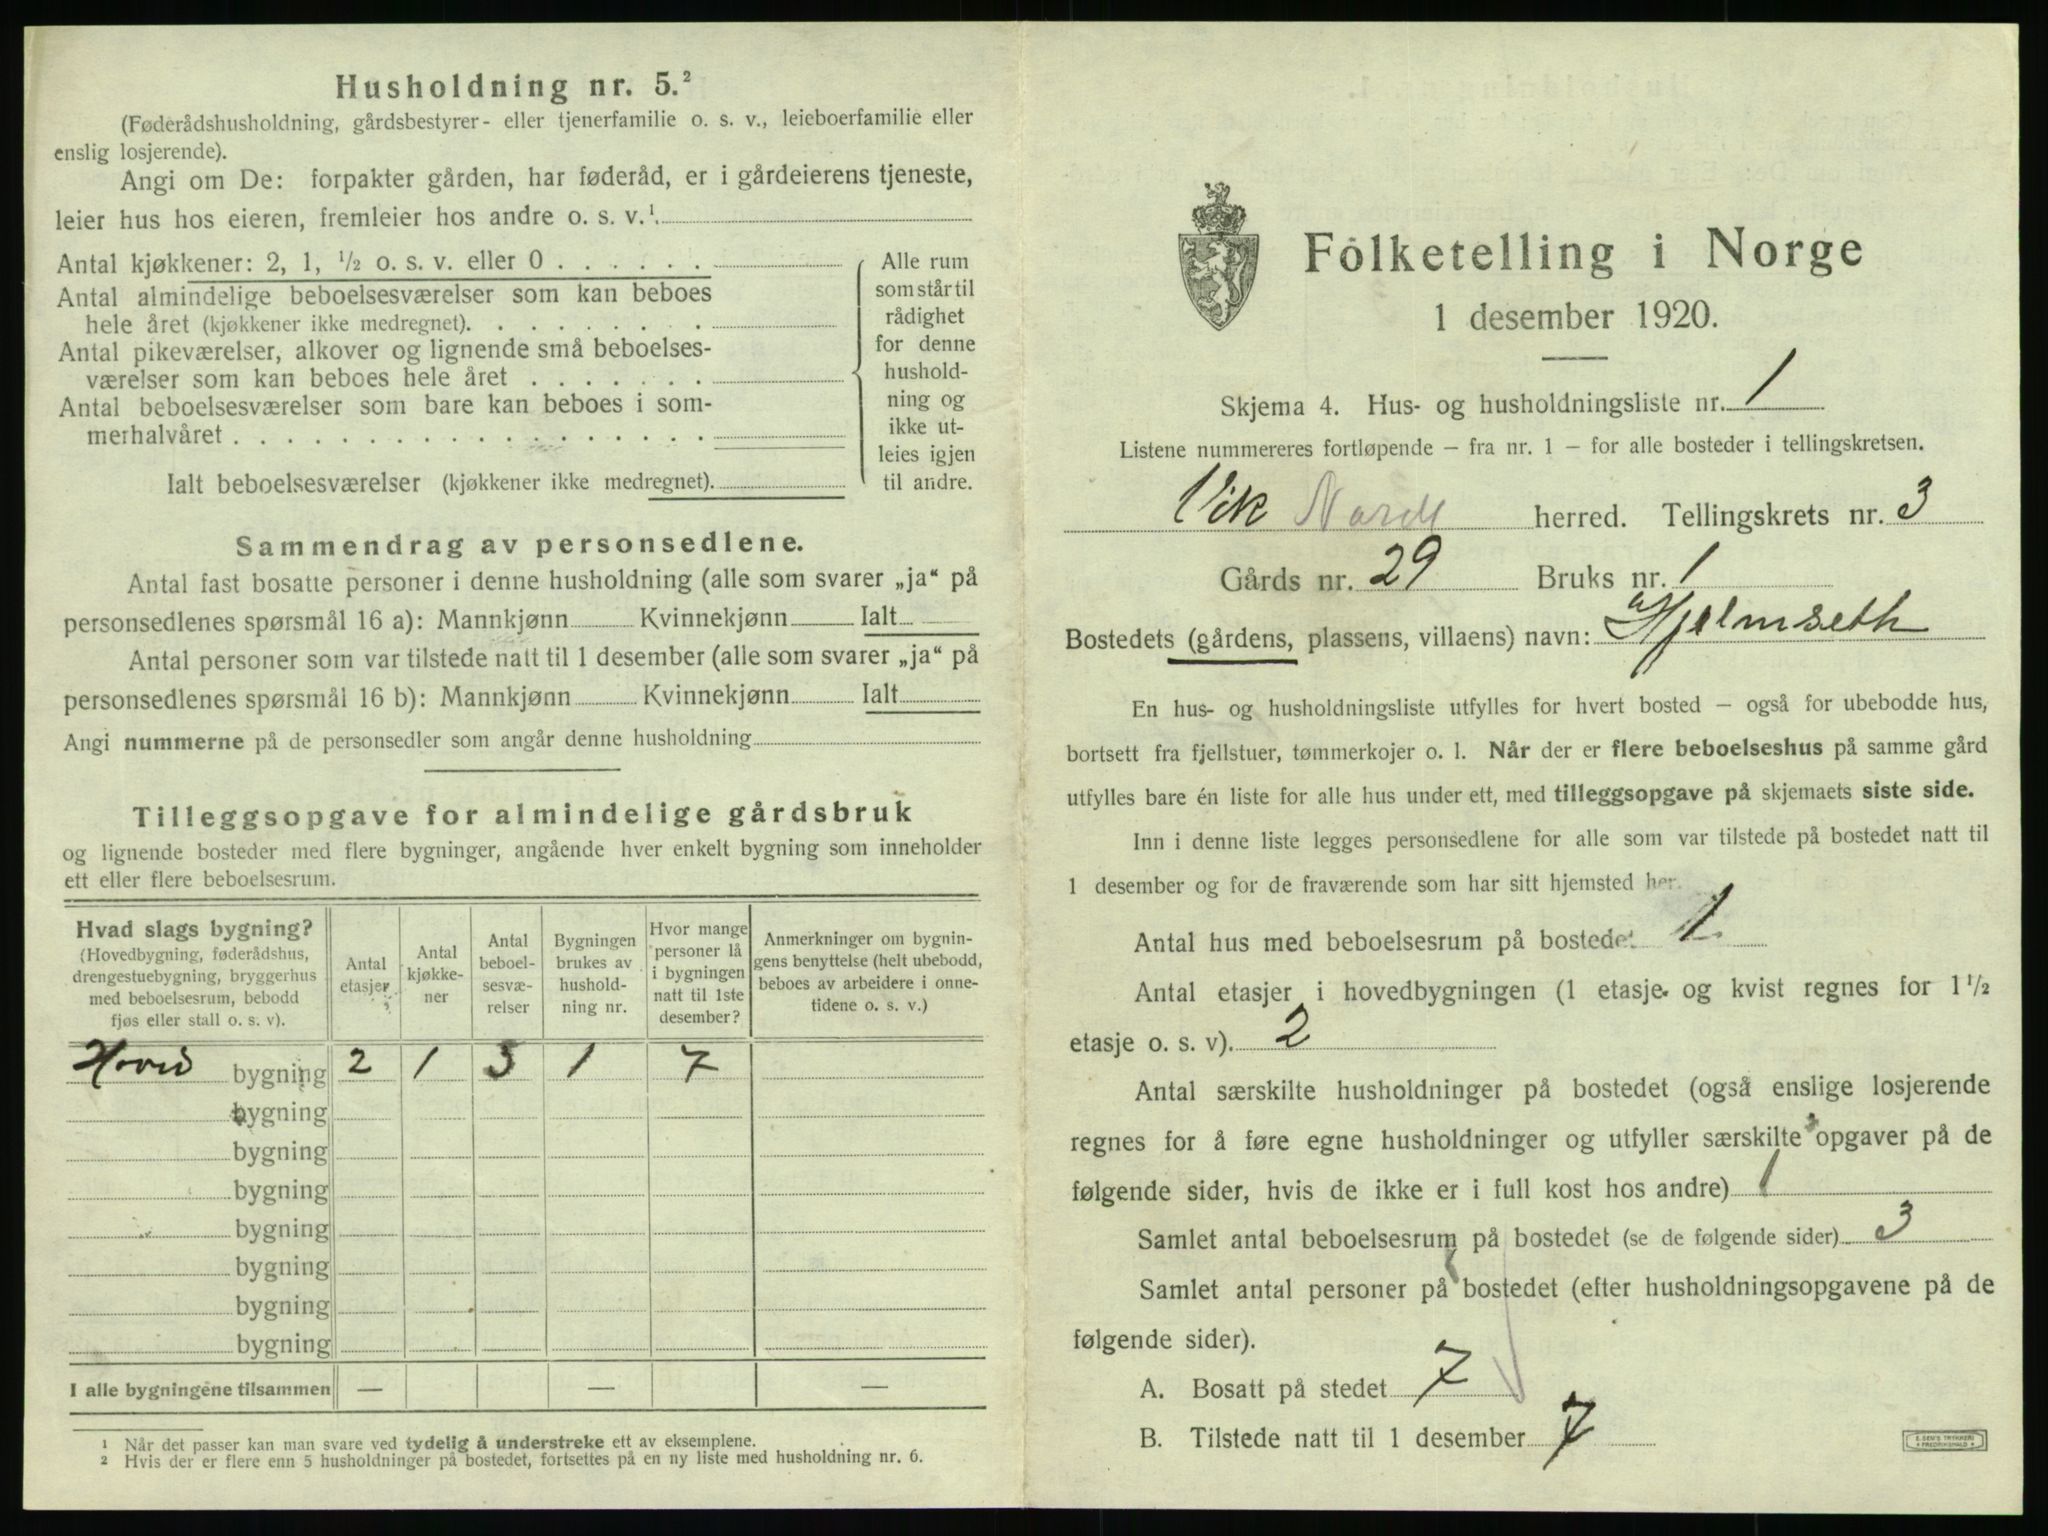 Husholdning nr. 5.²
(Føderådshusholdning, gårdsbestyrer- eller tjenerfamilie o. s. v., leieboerfamilie eller
enslig losjerende).
Angi om De: forpakter gården, har føderåd, er i gårdeierens tjeneste,
leier hus hos eieren, fremleier hos andre o. s. v.¹.
Antal kjøkkener: 2, 1, ½ o. s. v. eller 0 . . . . . .
Antal almindelige beboelsesværelser som kan beboes
hele året (kjøkkener ikke medregnet). . . . . . . . .
Antal pikeværelser, alkover og lignende små beboelses-
værelser som kan beboes hele året . . . . . . .
Antal beboelsesværelser som bare kan beboes i som-
merhalvåret . . . . . . . . . . . . . . . . . .
Ialt beboelsesværelser (kjøkkener ikke medregnet).
Alle rum
som står til
rådighet
for denne
hushold-
ning og
ikke ut-
leies igjen
til andre.
Sammendrag av personsedlene.
Antal fast bosatte personer i denne husholdning (alle som svarer „ja“ på
personsedlenes spørsmål 16 a): Mannkjønn Kvinnekjønn Ialt
Antal personer som var tilstede natt til 1 desember (alle som svarer „ja“ på
personsedlenes spørsmål 16 b): Mannkjønn Kvinnekjønn Ialt
Angi nummerne på de personsedler som angår denne husholdning
Tilleggsopgave for almindelige gårdsbruk
og lignende bosteder med flere bygninger, angående hver enkelt bygning som inneholder
ett eller flere beboelsesrum.
Hvad slags bygning?
(Hovedbygning, føderådshus,
drengestuebygning, bryggerhus
med beboelsesrum, bebodd
fjøs eller stall o. s. v).
Antal
etasjer
Antal
kjøkke-
ner
Antal
beboel-
sesvæ-
relser
Bygningen
brukes av
hushold-
ning nr.
Hvor mange
personer lå
i bygningen
natt til 1ste
desember?
Anmerkninger om bygnin-
gens benyttelse (helt ubebodd,
beboes av arbeidere i onne-
tidene o. s. v.)
Hoved bygning 2 1 3 1 7
bygning
bygning
bygning
bygning
bygning
bygning
bygning
I alle bygningene tilsammen — — —
¹ Når det passer kan man svare ved tydelig å understreke ett av eksemplene.
² Hvis der er flere enn 5 husholdninger på bostedet, fortsettes på en ny liste med husholdning nr. 6.
Folketelling i Norge
1 desember 1920.
Skjema 4. Hus- og husholdningsliste nr. 1
Listene nummereres fortløpende – fra nr. 1 – for alle bosteder i tellingskretsen.
Vik Nordl herred. Tellingskrets nr. 3
Gårds nr. 29 Bruks nr. 1
Bostedets (gårdens, plassens, villaens) navn: Hjelmseth
En hus- og husholdningsliste utfylles for hvert bosted – også for ubebodde hus,
bortsett fra fjellstuer, tømmerkojer o. l. Når der er flere beboelseshus på samme gård
utfylles bare én liste for alle hus under ett, med tilleggsopgave på skjemaets siste side.
Inn i denne liste legges personsedlene for alle som var tilstede på bostedet natt til
1 desember og for de fraværende som har sitt hjemsted her.
Antal hus med beboelsesrum på bostedet 1
Antal etasjer i hovedbygningen (1 etasje og kvist regnes for 1½
etasje o. s. v). 2
Antal særskilte husholdninger på bostedet (også enslige losjerende
regnes for å føre egne husholdninger og utfyller særskilte opgaver på de
følgende sider, hvis de ikke er i full kost hos andre) 1
Samlet antal beboelsesrum på bostedet (se de følgende sider) 3
Samlet antal personer på bostedet (efter husholdningsopgavene på de
følgende sider).
A. Bosatt på stedet 7
B. Tilstede natt til 1 desember 7
E. SEM'S TRYKKERI
FREDRIKSHALD